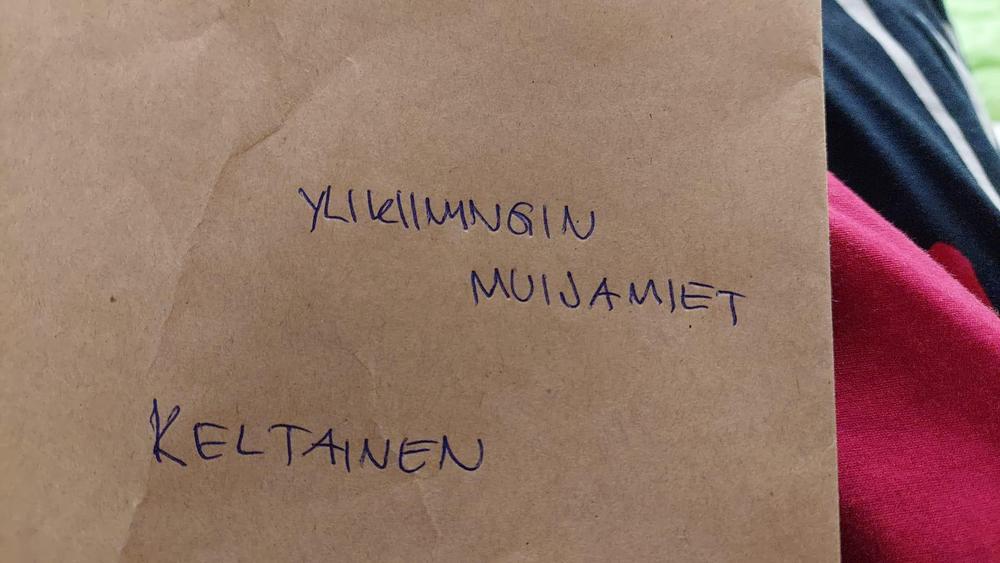 YLIKIIMINGIN
MUIJAMIET
KELTAINEN